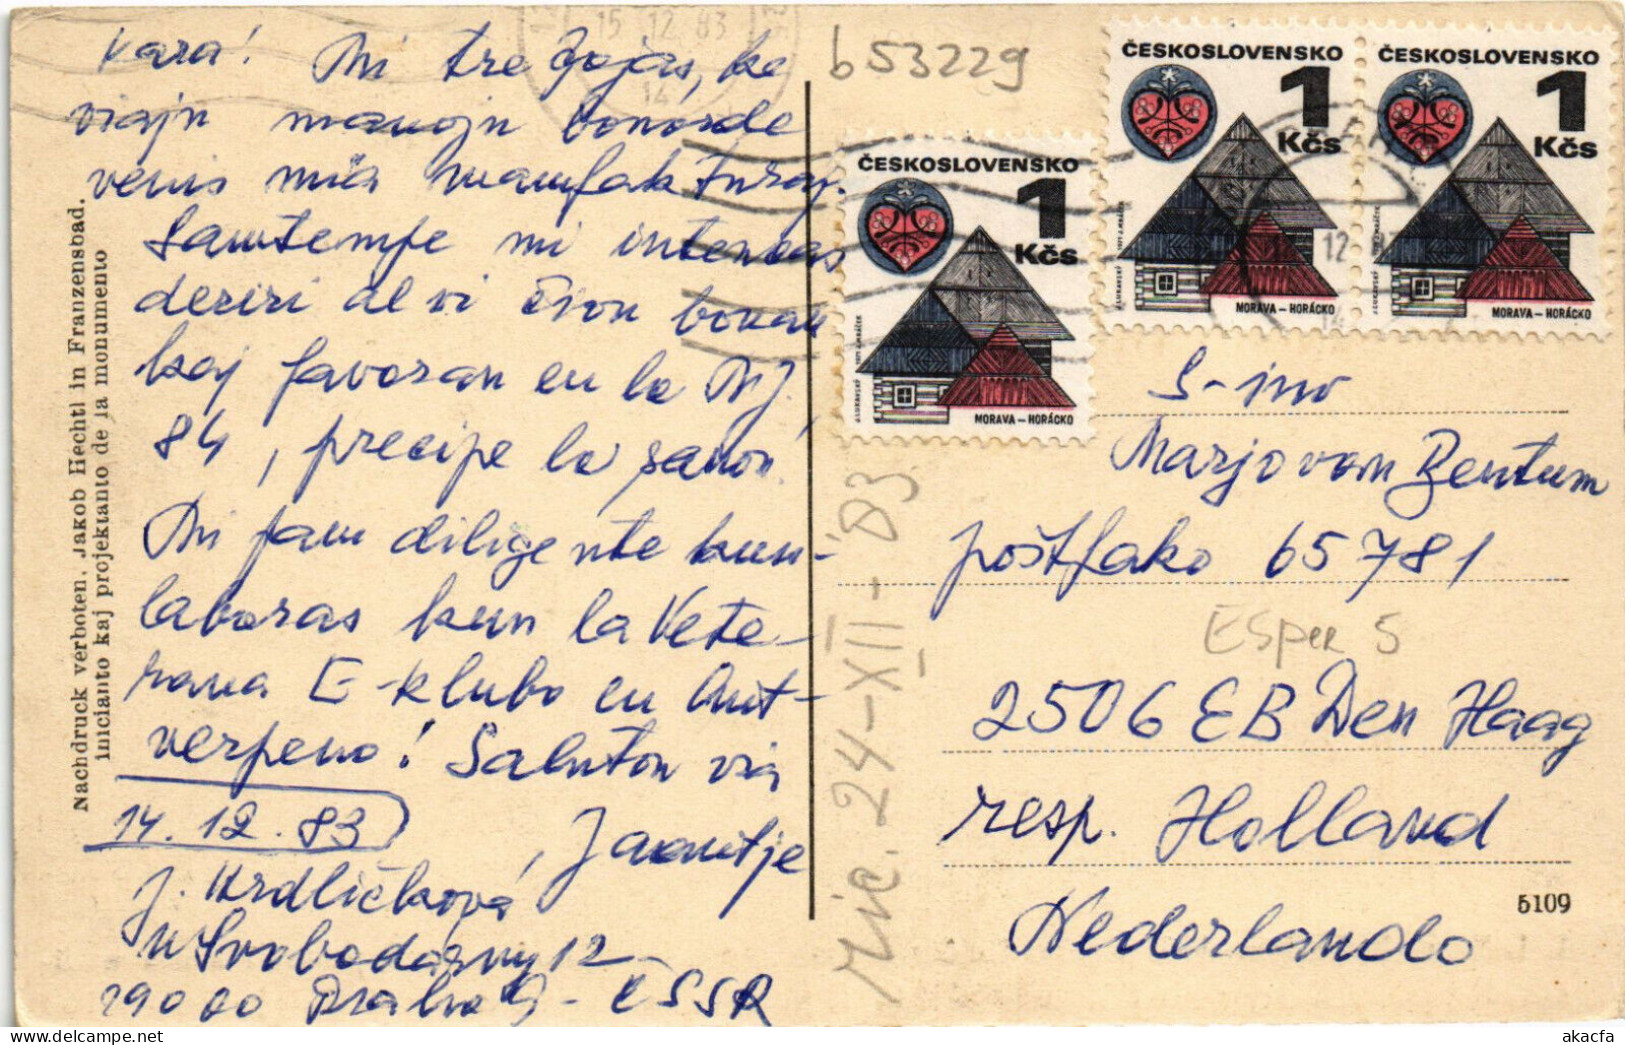 Kara! Mi tre ĝojas, ke
viajn manojn bonorde
venis miaj manfakturaj.
Samtempe mi intencas
deziri al vi ĉion bonan
kaj favoran en la N.J.
84, precipe la sanon!
Mi jam diligente kun-
laboras kun la Vete-
rana E-klubo en Ant-
verpeno! Saluton via
14.12.83
Jaantje
J. Hrdličková,
U Svobodárny 12
19000 Praha 9 - ČSSR
Nachdruck verboten. Jakob Hechtl in Franzensbad.
Inicianto kaj projektanto de la monumento
15 12 83
14
b53229
ČESKOSLOVENSKO
1
Kčs
MORAVA – HORÁCKO
ČESKOSLOVENSKO
1
Kčs
MORAVA – HORÁCKO
ČESKOSLOVENSKO
1
Kčs
MORAVA – HORÁCKO
Ric. 24-XII-83
S-ino
Marjo van Zentum
poŝtfako 65781
Esper 5
2506 EB Den Haag
resp. Holland
Nederlando
5109
akacfa